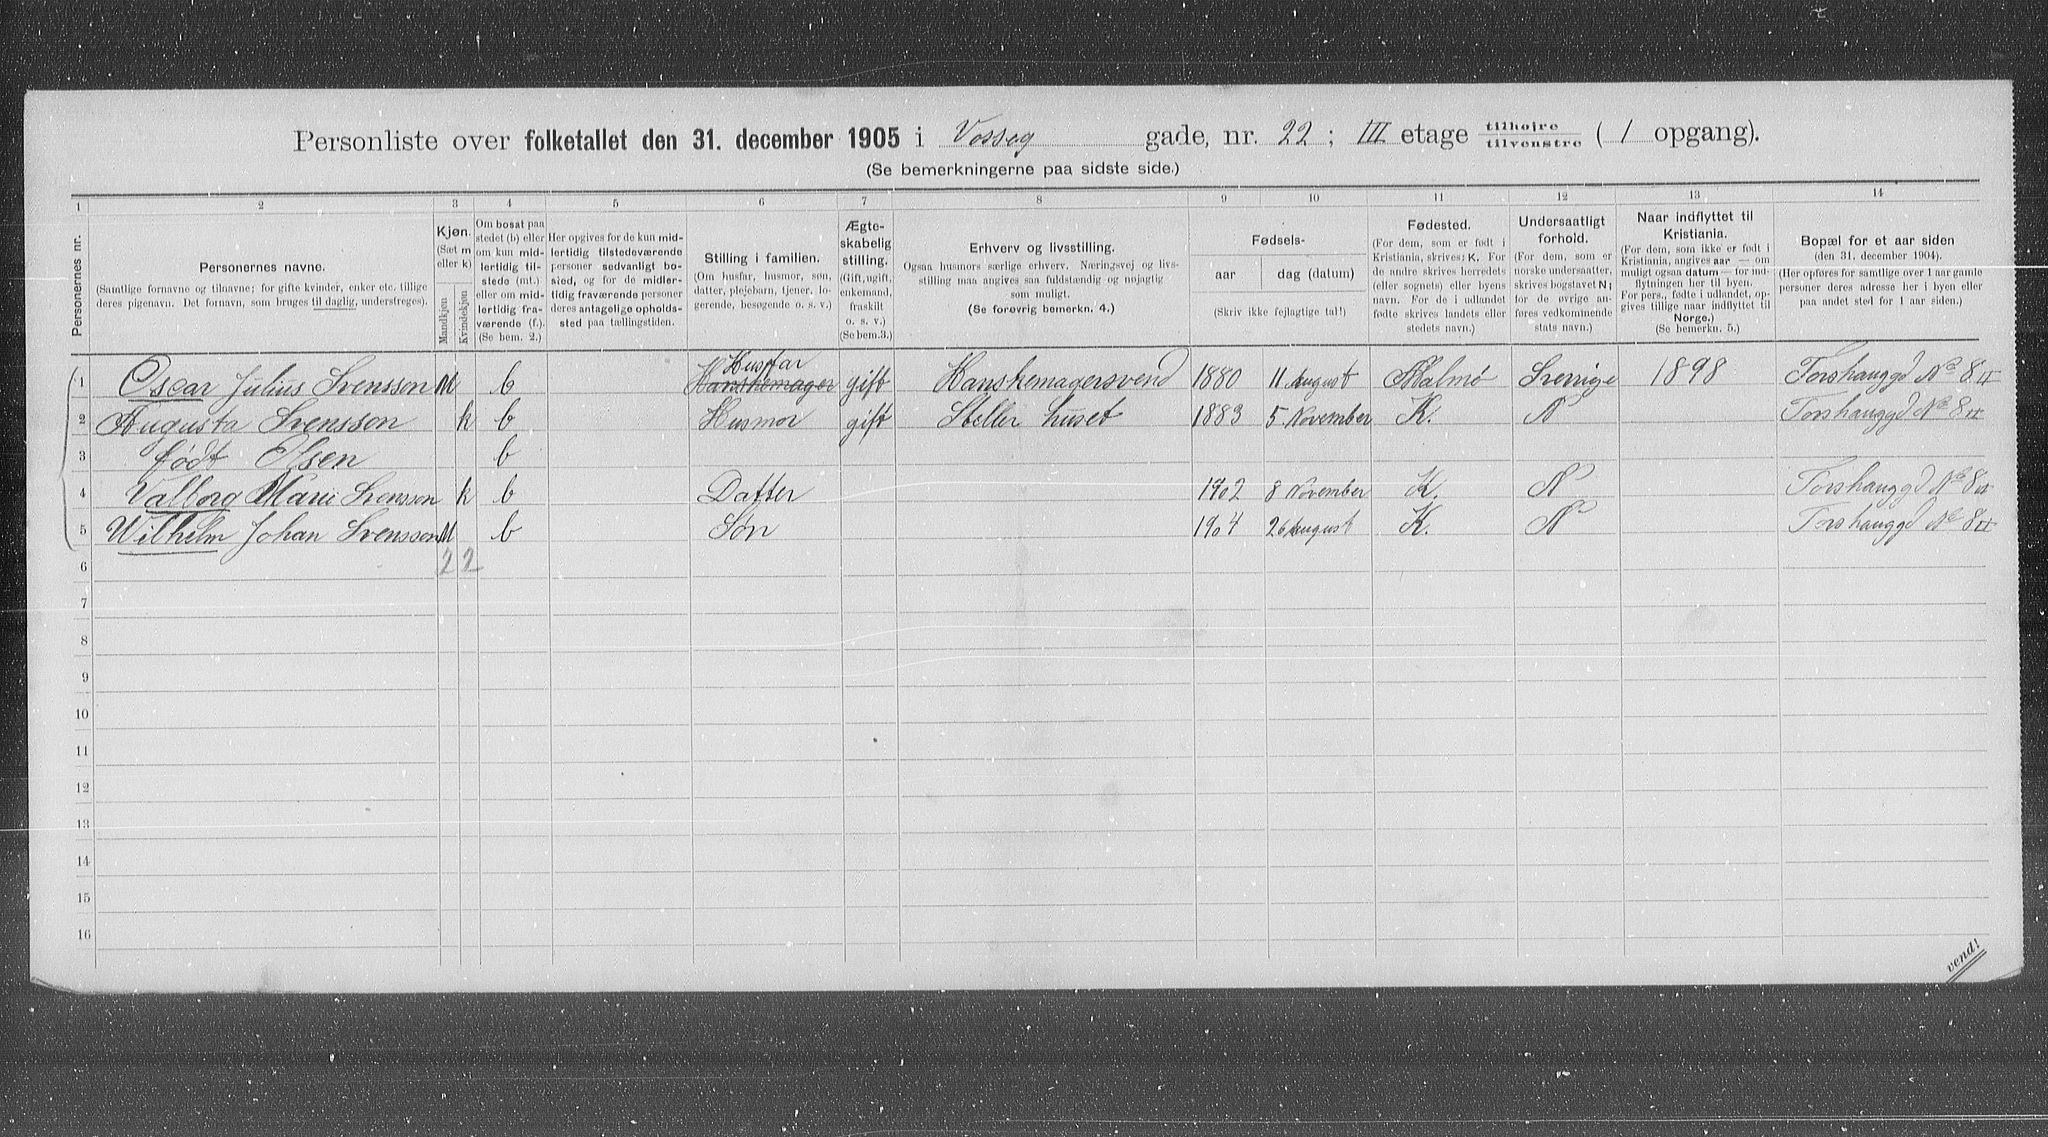 Personliste over folketallet den 31. december 1905 i Vosseg gade, nr. 22 ; III etage tilhøire tilvenstre ( 1 opgang).
(Se bemerkningerne paa sidste side.)
1 2 3 4 5 6 7 8 9 10 11 12 13 14
Personernes nr.
Personernes navne.
(Samtlige fornavne og tilnavne; for gifte kvinder, enker etc. tillige
deres pigenavn. Det fornavn, som bruges til daglig, understreges).
Kjøn.
(Sæt m
eller k)
Mandkjøn
Kvindekjøn
Om bosat paa
stedet (b) eller
om kun mid-
lertidig til-
stede (mt.)
eller om mid-
lertidig fra-
værende (f.).
(Se bem. 2.)
Her opgives for de kun mid-
lertidig tilstedeværende
personer sedvanligt bo-
sted, og for de midler-
tidig fraværende personer
deres antagelige opholds-
sted paa tællingstiden.
Stilling i familien.
(Om husfar, husmor, søn,
datter, plejebarn, tjener, lo-
gerende, besøgende o. s. v.)
Ægte-
skabelig
stilling.
(Gift, ugift,
enkemand,
fraskilt
o. s. v.)
(Se bem.3.)
Erhverv og livsstilling.
Ogsaa husmors særlige erhverv. Næringsvej og livs-
stilling maa angives saa fuldstændig og nøjagtig
som muligt.
(Se forøvrig bemerkn. 4.)
Fødsels-
aar
dag (datum)
(Skriv ikke fejlagtige tal!)
Fødested.
(For dem, som er født i
Kristiania, skrives: K. For
de andre skrives herredets
(eller sognets) eller byens
navn. For de i udlandet
fødte skrives landets eller
stedets navn.)
Undersaatligt
forhold.
(For dem, som er
norske undersaatter,
skrives bogstavet N;
for de øvrige an-
føres vedkommende
stats navn.)
Naar indflyttet til
Kristiania.
(For dem, som ikke er født i
Kristiania, angives aar — om
muligt ogsaa datum — for ind-
flytningen her til byen.
For pers., fødte i udlandet, op-
gives tillige naar indflyttet til
Norge.)
(Se bemerkn. 5.)
Bopæl for et aar siden
(den 31. december 1904).
(Her opføres for samtlige over 1 aar gamle
personer deres adresse her i byen eller
paa andet sted for 1 aar siden.)
Husfar
1 Oscar Julius Svensson M b Hanskemager gift Hanskemagersvend 1880 11 August Malmø Sverrige 1898 Torshauggd No 8 II
2 Augusta Svensson k b Husmor gift Steller huset 1883 5 November K. N Torshauggd No 8 II
3 født Olsen b
4 Valborg Marie Svensson k b Datter 1902 8 November K. N Torshauggd No 8 II
5 Wilhelm Johan Svensson M b Søn 1904 26 August K. N Torshauggd No 8 II
6 2 2
7
8
9
10
11
12
13
14
15
16
vend!